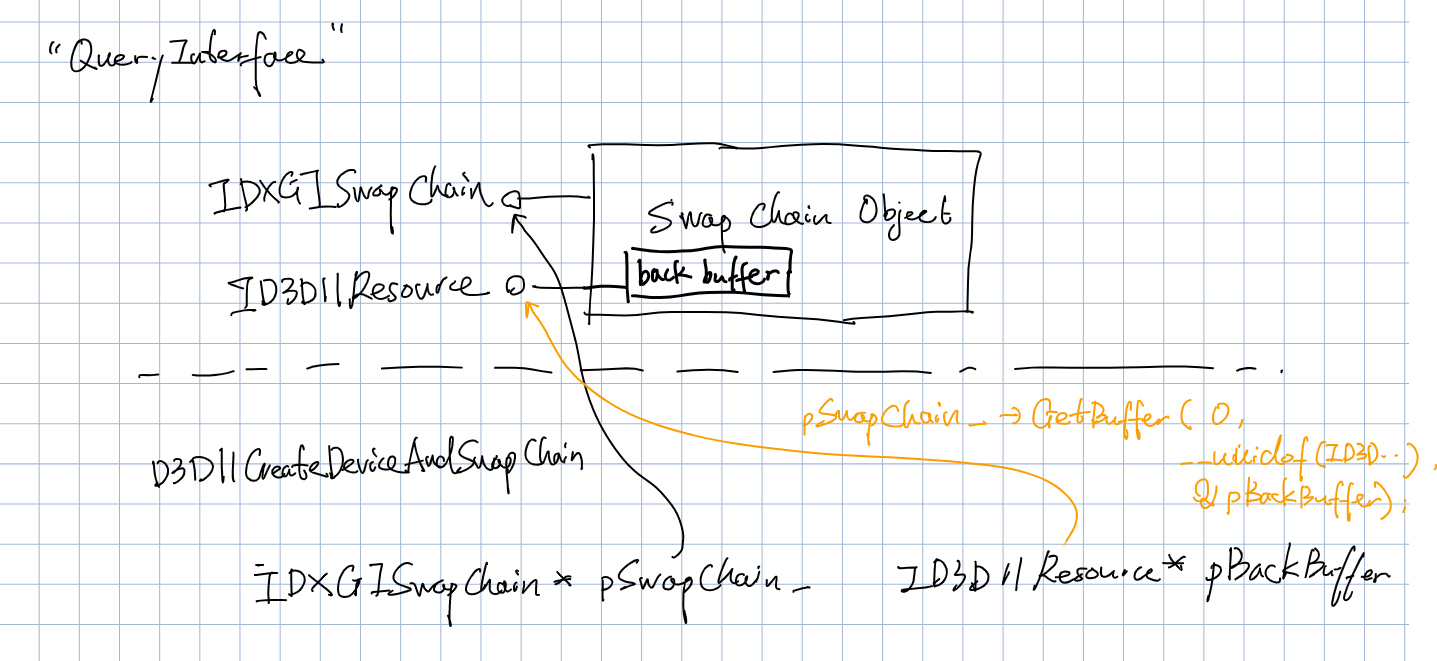 "QueryInterface"
IDXGISwapChain
Swap Chain Object
ID3D11Resource
back buffer
pSwapChain_ → GetBuffer ( 0,
__uuidof (ID3D..),
& pBackBuffer);
D3D11CreateDeviceAndSwapChain
IDXGISwapChain* pSwapChain_
ID3D11Resource* pBackBuffer